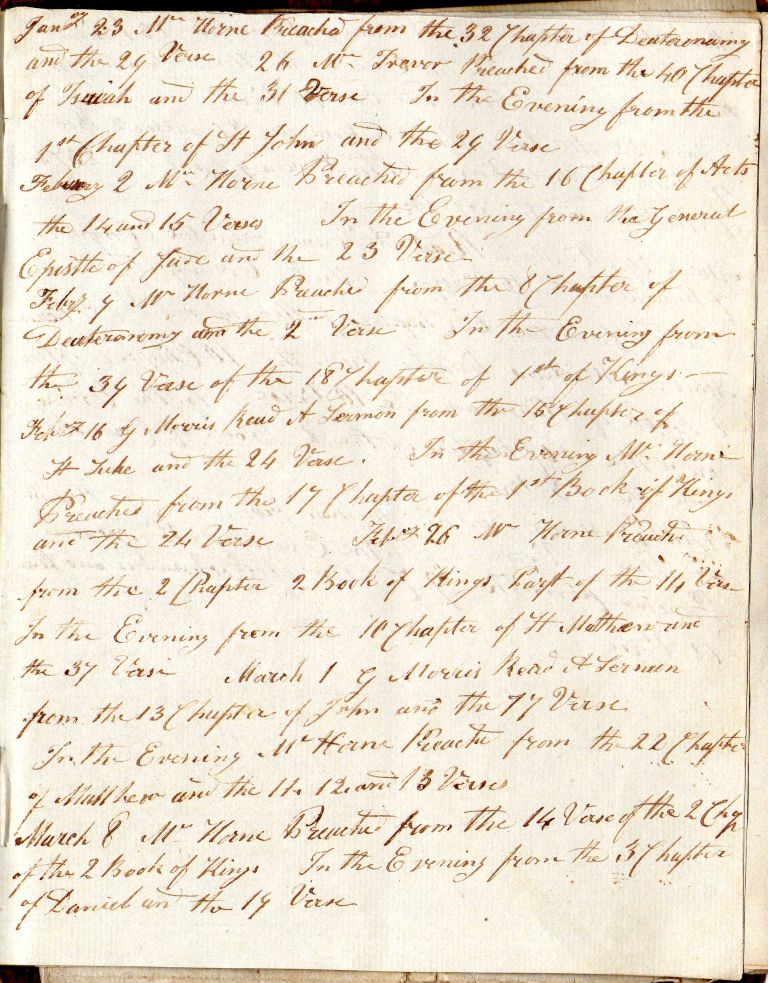 Jany 23 Mr Horne Preached from the 32 Chapter of Deuteronamy
and the 29 Verse 26 Mr Trevor Preached from the 40 Chapter
of Isaiah and the 31 Verse In the Evening from the
1st Chapter of St John and the 29 Verse
Febuary 2 Mr Horne Preached from the 16 Chapter of Acts
the 14 and 15 Verses In the Evening from the General
Epistle of Jude and the 23 Verse
Feby 9 Mr Horne Preached from the 8 Chapter of
Deuteronomy and the 2nd Verse In the Evening from
the 39 Verse of the 18 Chapter of 1st of Kings —
Feby 16 G Morris Read A Sermon from the 15 Chapter of
St Luke and the 24 Verse. In the Evening Mr Horne
Preached from the 17 Chapter of the 1st Book of Kings
and the 24 Verse Feby 26 Mr Horne Preached
from the 2 Chapter 2 Book of Kings Part of the 14 Verse
In the Evening from the 10 Chapter of St Mathew and
the 37 Verse March 1 G Morris Read A Serman
from the 13 Chapter of John and the 17 Verse
In the Evening Mr Horne Preachd from the 22 Chapter
of Matthew and the 11. 12 and 13 Verses
March 8 Mr Horne Preached from the 14 Verse of the 2 Chap
of the 2 Book of Kings In the Evening from the 3 Chapter
of Daniel and the 19 Verse